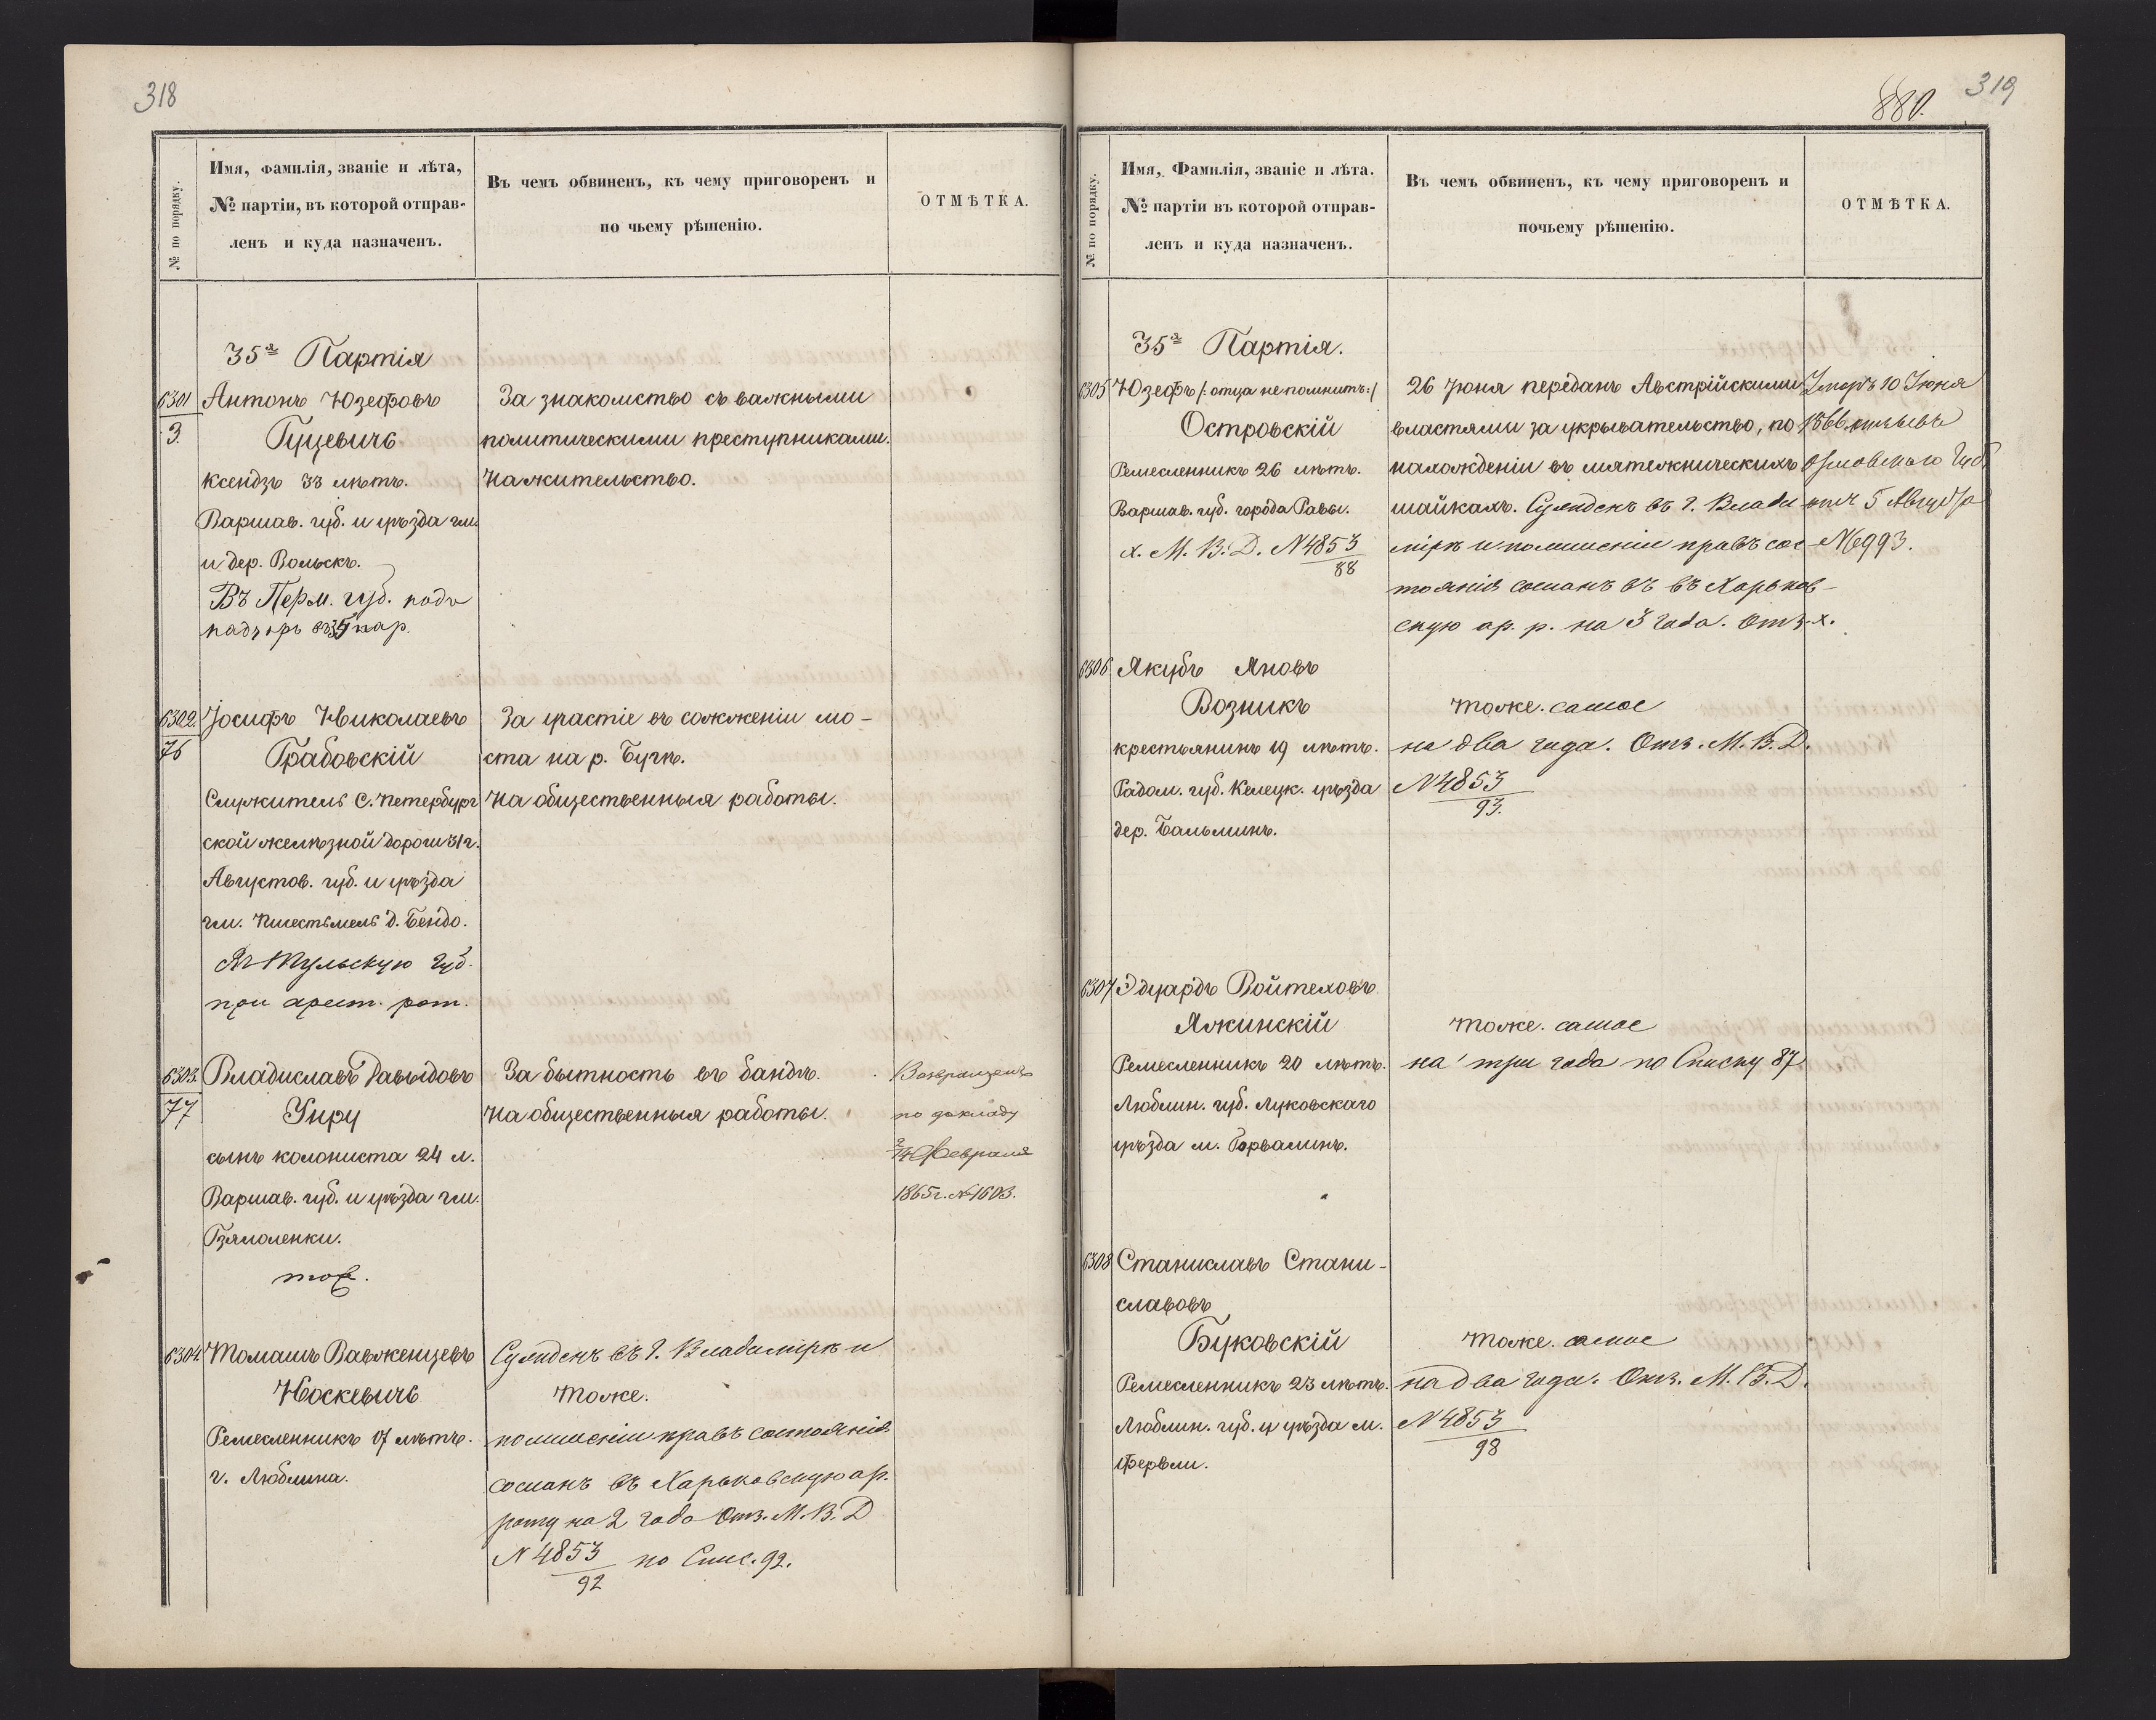 318
№ по порядку.
Имя, фамилія, званіе и лѣта,
№ партіи, въ которой отправ-
ленъ и куда назначенъ.
Въ чемъ обвиненъ, къ чему приговоренъ и
по чьему рѣшенію.
ОТМѢТКА.
35я Партія
6301
3.
Антонъ Юзефовъ
Гуцевичъ
Ксендзъ 33 лѣтъ.
Варшав. губ. и уѣзда гм.
и дер. Вольскъ.
Въ Перм. губ. подъ
надзоръ въ 35 пар.
За знакомство съ важными
политическими преступниками.
На жительство.
6302.
76
Іосифъ Николаевъ
Грабовскій
Служитель С. Петербург
ской желѣзной дороги 31 г.
Августов. губ. и уѣзда
гм. Пшестьмель д. Бендо.
Въ Тульскую губ.
при арест. рот.
За участіе въ сожженіи мо-
ста на р. Бугѣ.
На общественныя работы.
6303.
77
Владиславъ Давыдовъ
Унру
сынъ колониста 24 л.
Варшав. губ. и уѣзда гм.
Гзямоленки.
тоже.
За бытность въ бандѣ.
На общественныя работы.
Возвращенъ
по докладу
Февраля
1865 г. № 1603.
6304
Томашъ Вавженцевъ
Носкевичъ
Ремесленникъ 17 лѣтъ.
г. Люблина.
Сужденъ въ г. Владимірѣ и
тоже.
по лишеніи правъ состоянія
сосланъ въ Харьковскую ар.
роту на 2 года Отз. М. В. Д
N 4853
92
по Спис. 92.
319
880.
№ по порядку.
Имя, Фамилія, званіе и лѣта.
№ партіи въ которой отправ-
ленъ и куда назначенъ.
Въ чемъ обвиненъ, къ чему приговоренъ и
почьему рѣшенію.
ОТМѢТКА.
35я Партія.
6305
Юзефъ /: отца не помнитъ :/
Островскій
Ремесленникъ 26 лѣтъ.
Варшав. губ. города Равы.
х. М. В. Д. N 4853
88
26 Іюня переданъ Австрійскими
властями за укрывательство, по
нахожденіи въ мятежническихъ
шайкахъ. Сужденъ въ г. Влади
мірѣ и по лишеніи правъ сос
тоянія сосланъ въ въ Харьков-
скую ар. р. на 3 года. Отз. х.
Умеръ 10 Іюня
1866
губ.
5 Августа
№ 6993.
6306
Якубъ Яновъ
Возникъ
крестьянинъ 19 лѣтъ.
Радом. губ. Келецк. уѣзда
дер. Бальминъ.
тоже. самое
на два года. Отз. М. В. Д.
N 4853
93.
6307
Эдуардъ Войтеховъ
Яжинскій
Ремесленникъ 20 лѣтъ.
Люблин. губ. Луковскаго
уѣзда м. Горвалинъ.
тоже. самое
на три года по Списку 87
6308
Станиславъ Стани-
славовъ
Буковскій
Ремесленникъ 23 лѣтъ.
Люблин. губ. и уѣзда м.
Фервли.
тоже. самое
на два года. Отз. М. В. Д.
N 4853
98